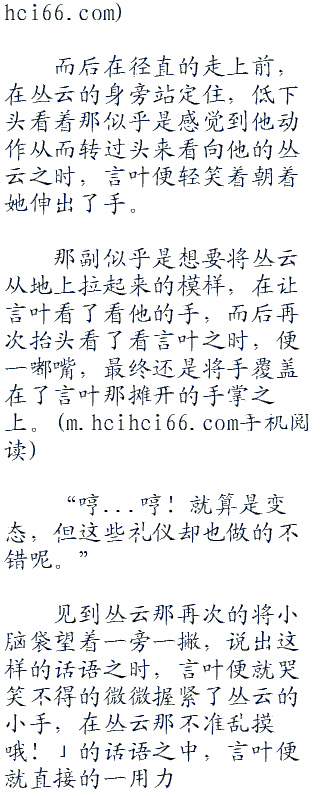 hci66.com)
　　而后在径直的走上前，
在丛云的身旁站定住，低下
头看着那似乎是感觉到他动
作从而转过头来看向他的丛
云之时，言叶便轻笑着朝着
她伸出了手。
　　那副似乎是想要将丛云
从地上拉起来的模样，在让
言叶看了看他的手，而后再
次抬头看了看言叶之时，便
一嘟嘴，最终还是将手覆盖
在了言叶那摊开的手掌之
上。(m.hcihci66.com手机阅
读)
　　“哼...哼！就算是变
态，但这些礼仪却也做的不
错呢。”
　　见到丛云那再次的将小
脑袋望着一旁一撇，说出这
样的话语之时，言叶便就哭
笑不得的微微握紧了丛云的
小手，在丛云那不准乱摸
哦！」的话语之中，言叶便
就直接的一用力